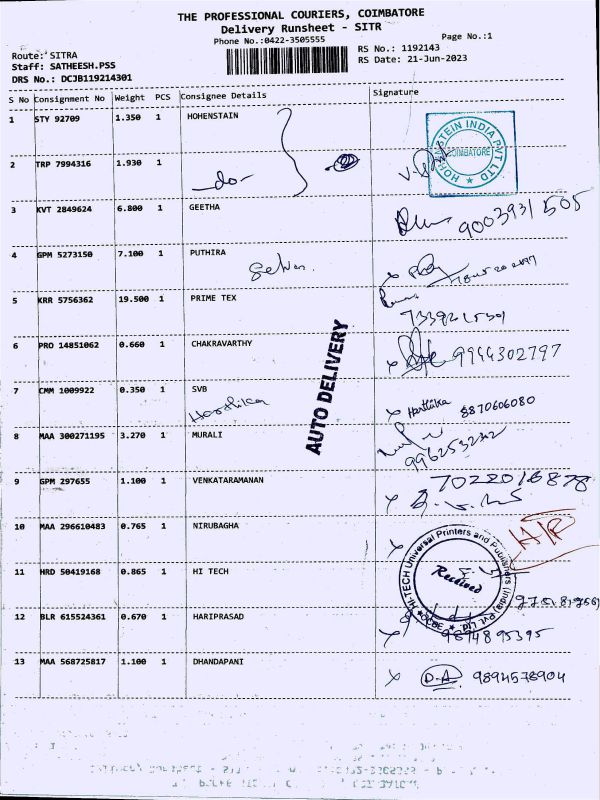 THE PROFESSIONAL COURIERS, COIMBATORE
Delivery Runsheet - SITR
Phone No.:0422-3505555
Page No.:1
Route: SITRA
Staff: SATHEESH.PSS
DRS No.: DCJB119214301
RS No.: 1192143
RS Date: 21-Jun-2023
S No Consignment No Weight PCS Consignee Details Signature
1 STY 92709 1.350 1 HOHENSTAIN
HOHENSTEIN INDIA PVT LTD
COIMBATORE
2 TRP 7994316 1.930 1
-do-
3 KVT 2849624 6.800 1 GEETHA
9003931505
4 GPM 5273150 7.100 1 PUTHIRA
5 KRR 5756362 19.500 1 PRIME TEX
6 PRO 14851062 0.660 1 CHAKRAVARTHY
9944302797
7 CMM 1009922 0.350 1 SVB
Harthika
Harthika 8870606080
AUTO DELIVERY
8 MAA 300271195 3.270 1 MURALI
9 GPM 297655 1.100 1 VENKATARAMANAN
7022016878
10 MAA 296610483 0.765 1 NIRUBAGHA
11 HRD 50419168 0.865 1 HI TECH
HI-TECH Universal Printers and Publishers (India) Pvt Ltd
Received
12 BLR 615524361 0.670 1 HARIPRASAD
9894895395
13 MAA 568725817 1.100 1 DHANDAPANI
D.A. 9894578904